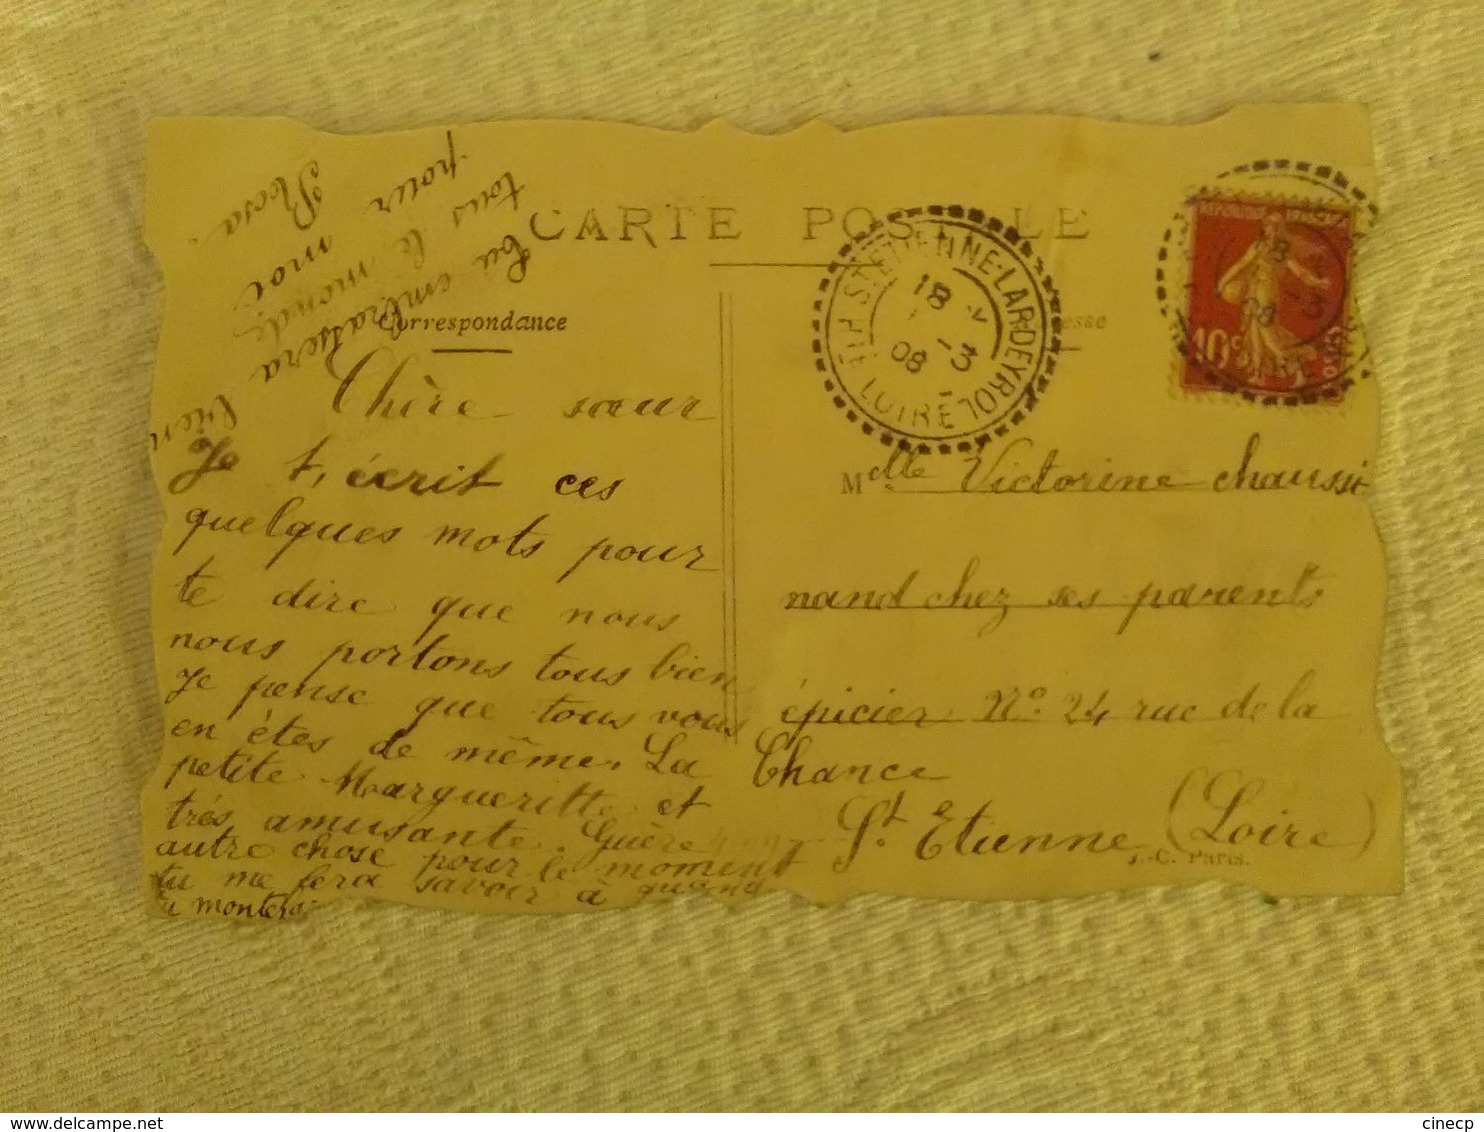 CARTE POSTALE
Correspondance
Chère sœur
Je t, écrit ces
quelques mots pour
te dire que nous
nous portons tous bien
Je pense que tous vous
en êtes de même. La
petite Margueritte et
trés amusante. Guère
autre chose pour le moment
tu me fera savoir à quand
tu montera
tu embrassera bien
tous le monde
pour moi
Rosa
ST ETIENNE-LARDEYROL
HTE LOIRE
18
-3
08
10c
Melle Victorine chaussi
nand chez ses parents
épicier No 24 rue de la
Chance
St Etienne (Loire)
.-C. Paris.
cinecp